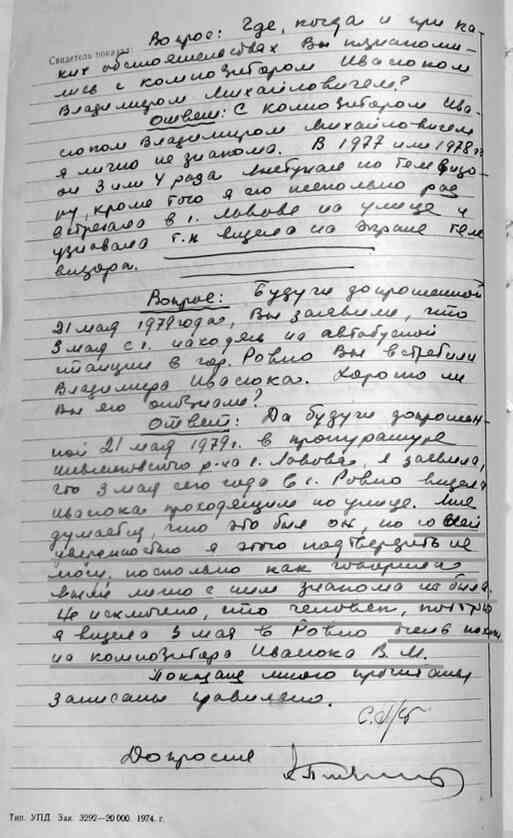 Свидетель показал:
Вопрос: Где, когда и при ка-
ких обстоятельствах Вы познакоми-
лись с композитором Ивасюком
Владимиром Михайловичем?
Ответ: С композитором Ива-
сюком Владимиром Михайловичем
я лично не знакома. В 1977 или 1978 г.
он 3 или 4 раза выступал по телевизо-
ру, кроме того я его несколько раз
встречала в г. Львове на улице и
узнавала т.к видела на экране теле
визора.
Вопрос: Будучи допрошенной
21 мая 1979 года, Вы заявили, что
3 мая с.г. находясь на автобусной
станции в гор. Ровно Вы встретили
Владимира Ивасюка. Хорошо ли
Вы его опознали?
Ответ: Да будучи допрошен-
ной 21 мая 1979 г. в прокуратуре
р-на г. Львова, я заявила,
что 3 мая сего года в г. Ровно видела
Ивасюка проходящим по улице. Мне
думается, что это был он, но со всей
уверенностью я этого подтвердить не
могу, поскольку как говорила
выше лично с ним знакома не была.
Не исключено, что человек, которого
я видела 3 мая в Ровно очень похож
на композитора Ивасюка В.М.
Показания мною прочитаны
записаны правильно.
Допросил
Тип. УПД. Зак. 3292—20 000. 1974. г.